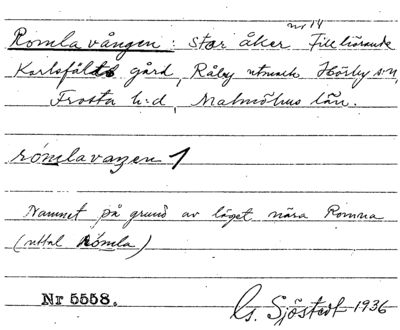 Romlavången: stor åker nr 14 tillhörande
Karlsfälts gård, Råby utmark Hörby s:n,
Frosta h:d, Malmöhus län.
rómlavaŋen 1
Namnet på grund av läget nära Romna
(uttal Rómla)
Nr 5558.
G. Sjöstedt 1936